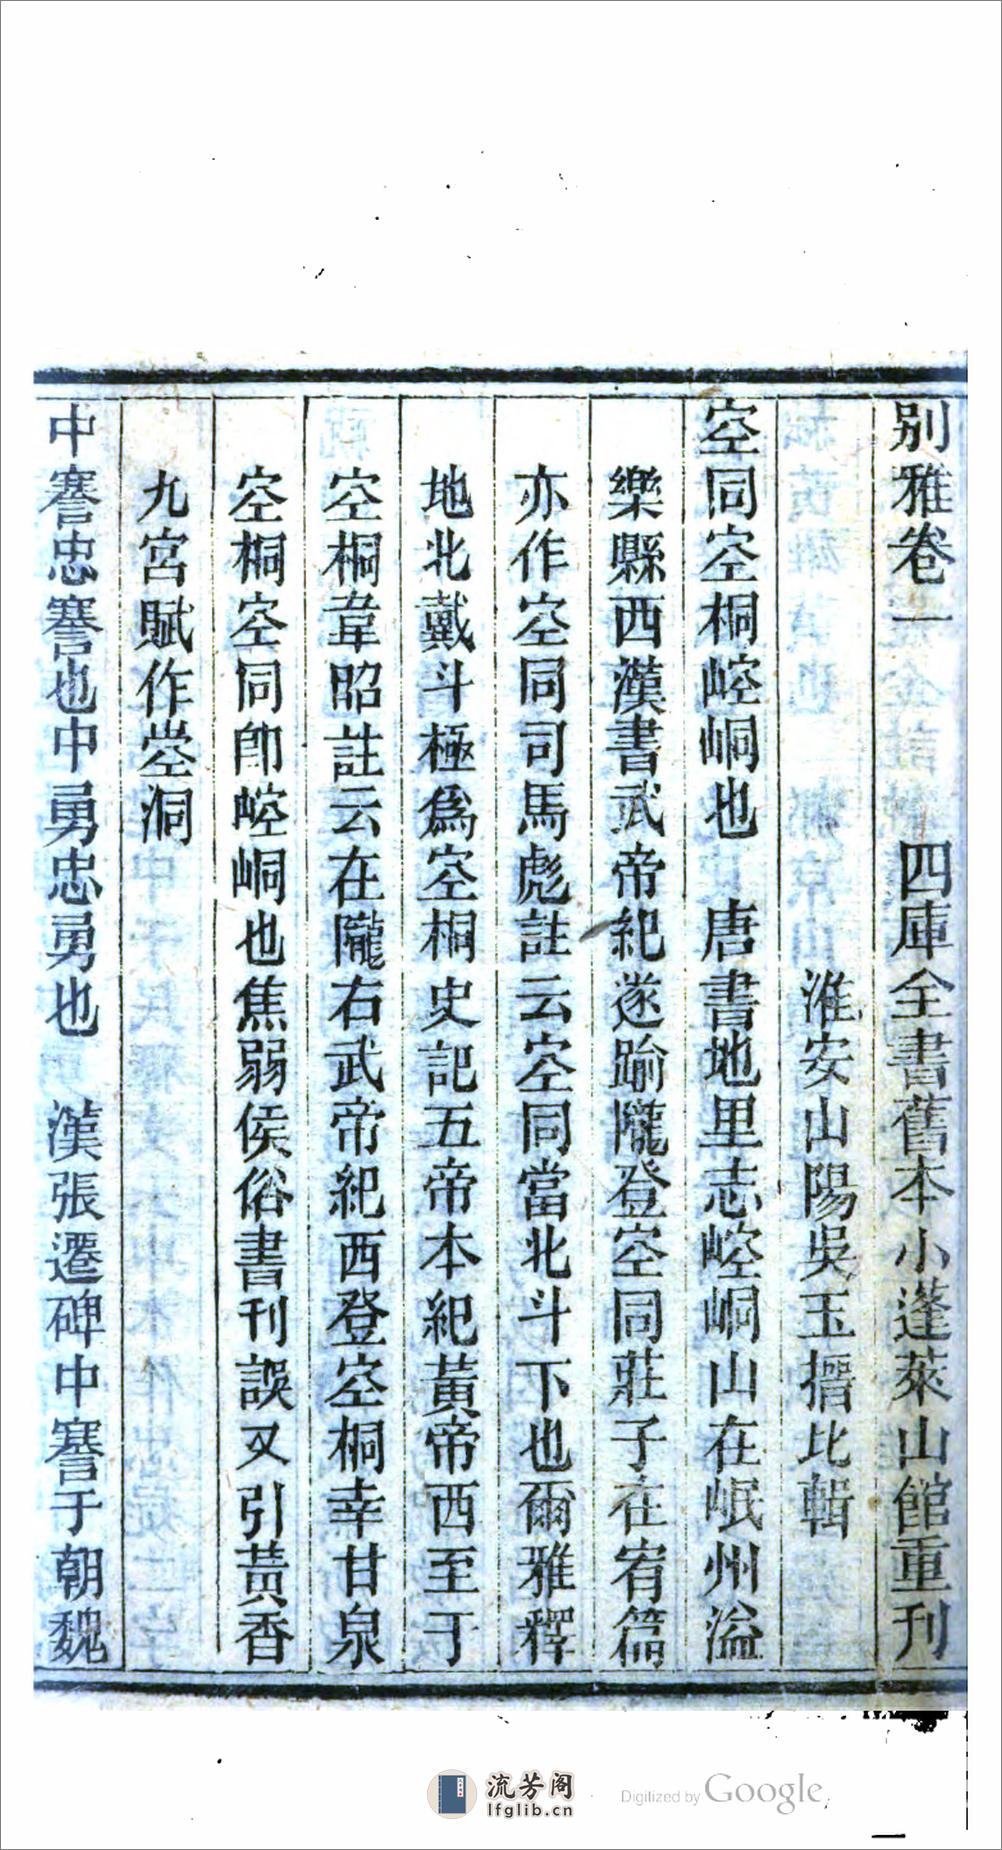 別雅卷一 四庫全書舊本小蓬萊山館重刊
淮安山陽吳玉搢比輯
空同空桐崆峒也 唐書地里志崆峒山在岷州溢
樂縣西漢書武帝紀遂踰隴登空同莊子在宥篇
亦作空同司馬彪註云空同當北斗下也爾雅釋
地北戴斗極爲空桐史記五帝本紀黃帝西至于
空桐韋昭註云在隴右武帝紀西登空桐幸甘泉
空桐空同卽崆峒也焦弱侯俗書刊誤又引黃香
九宮賦作崆洞
中謇忠謇也中勇忠勇也 漢張遷碑中謇于朝魏
流芳阁
lfglib.cn
Digitized by Google